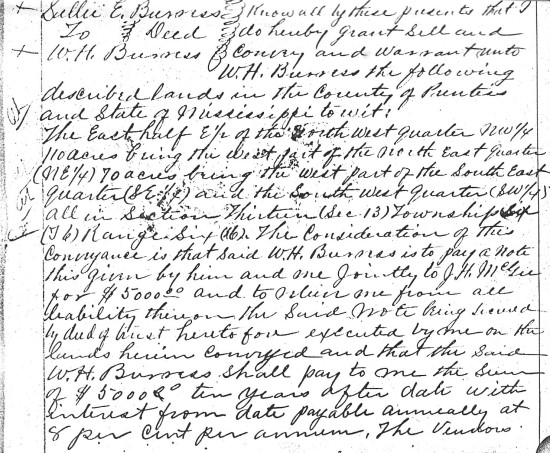 Sallie E. Burress } Know all by these presents that I
To } Deed } do hereby grant Sell and
W. H. Burress } Convey and Warrant unto
W. H. Burress the following
described lands in the County of Prentiss
and State of Mississippi to wit:
The East half E/2 of the North West Quarter NW 1/4
110 acres being the west part of the North East Quarter
(NE 1/4) 70 acres being the west part of the South East
Quarter (SE 1/4) and the South West Quarter (SW 1/4)
all in Section Thirteen (Sec 13) Township Six
(T 6) Range Six (R6). The Consideration of this
Conveyance is that said W. H. Burress is to pay a note
this given by him and me Jointly to J. H.
for $5000.00 and to relieve me from all
leability thereon the Said Note being secured
by deed of trust heretofore executed by me on the
lands herein Conveyed and that the Said
W. H. Burress Shall pay to me the Sum
of $5000.00 ten years after date with
interest from date payable annually at
8 per cent per annum. The Vendors